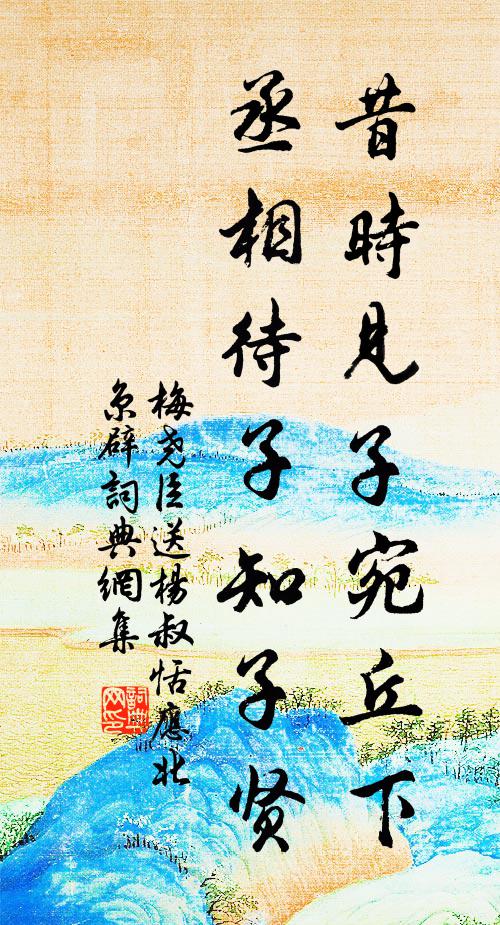 昔時見子宛丘下
丞相待子知子贤
梅尧臣送楊叔恬應北
京辟詞典網集